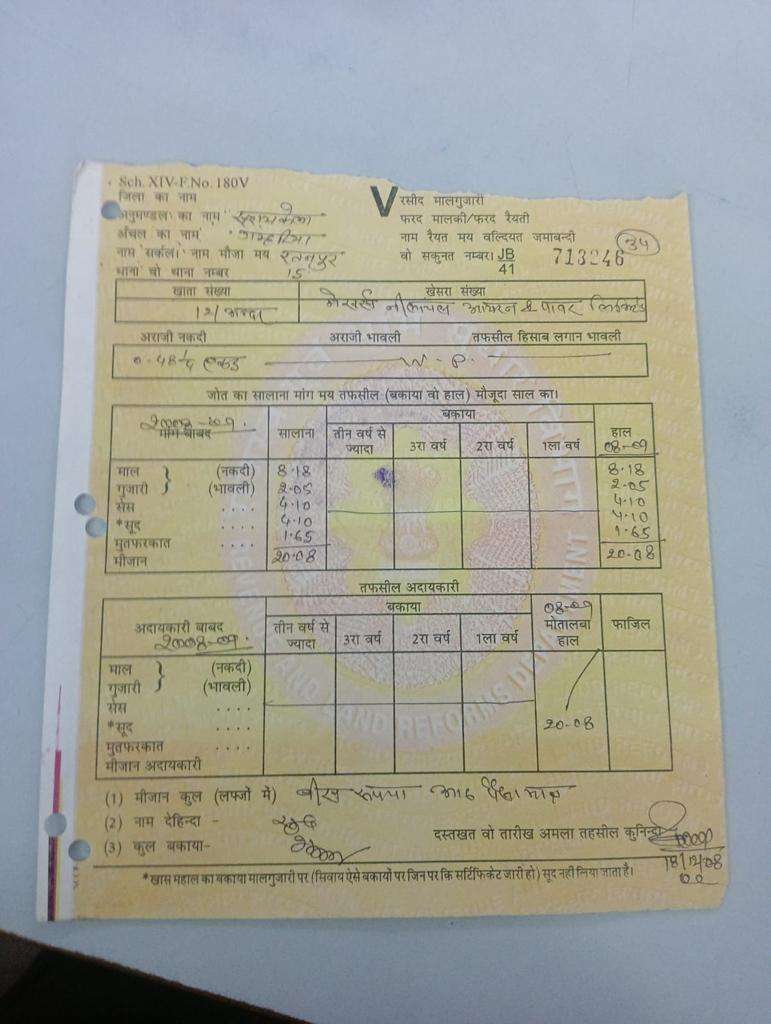 Sch. XIV-F.No. 180V
जिला का नाम
V रसीद मालगुजारी
अनुमण्डल का नाम सरायकेला
फरद मालकी/फरद रैयती
अंचल का नाम गम्हरिया
नाम रैयत मय वल्दियत जमाबन्दी
34
नाम सर्कल। नाम मौजा मय रतनपुर
वो सकुनत नम्बर। JB/41 713246
थाना वो थाना नम्बर 15
खाता संख्या खेसरा संख्या
मेसर्स नीलांचल आयरन & पावर लिमिटेड
अराजी नकदी अराजी भावली तफसील हिसाब लगान भावली
एकड़
जोत का सालाना मांग मय तफसील (बकाया वो हाल) मौजूदा साल का।
2008-09
मांग बाबद सालाना बकाया हाल 08-09
तीन वर्ष से ज्यादा 3रा वर्ष 2रा वर्ष 1ला वर्ष
माल (नकदी) 8.18 8.18
गुजारी (भावली) 2.05 2.05
सेस .... 4.10 4.10
*सूद .... 4.10 4.10
मुतफरकात .... 1.65 1.65
मीजान 20.08 20.08
तफसील अदायकारी
अदायकारी बाबद 2008-09 बकाया 08-09 मोतालबा हाल फाजिल
तीन वर्ष से ज्यादा 3रा वर्ष 2रा वर्ष 1ला वर्ष
माल (नकदी)
गुजारी (भावली)
सेस ....
*सूद .... 20.08
मुतफरकात ....
मीजान अदायकारी
(1) मीजान कुल (लफ्जों में) बीस रूपया आठ पैसा मात्र
(2) नाम देहिन्दा -
दस्तखत वो तारीख अमला तहसील कुनिन्दा
(3) कुल बकाया-
18/12/08
*खास महाल का बकाया मालगुजारी पर (सिवाय ऐसे बकायों पर जिन पर कि सर्टिफिकेट जारी हो) सूद नहीं लिया जाता है।